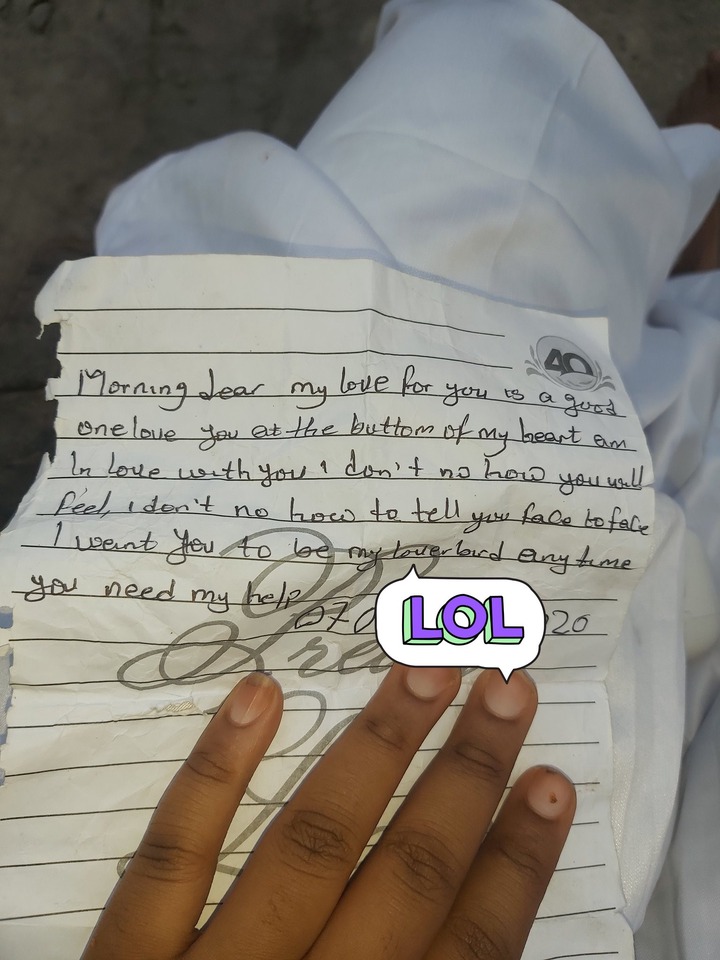 40
Morning dear my love for you is a good
one love you at the buttom of my heart am
In love with you i don't no how you will
feel, i don't no how to tell you face to face
I want you to be my loverbird any time
you need my help
070
LOL
20